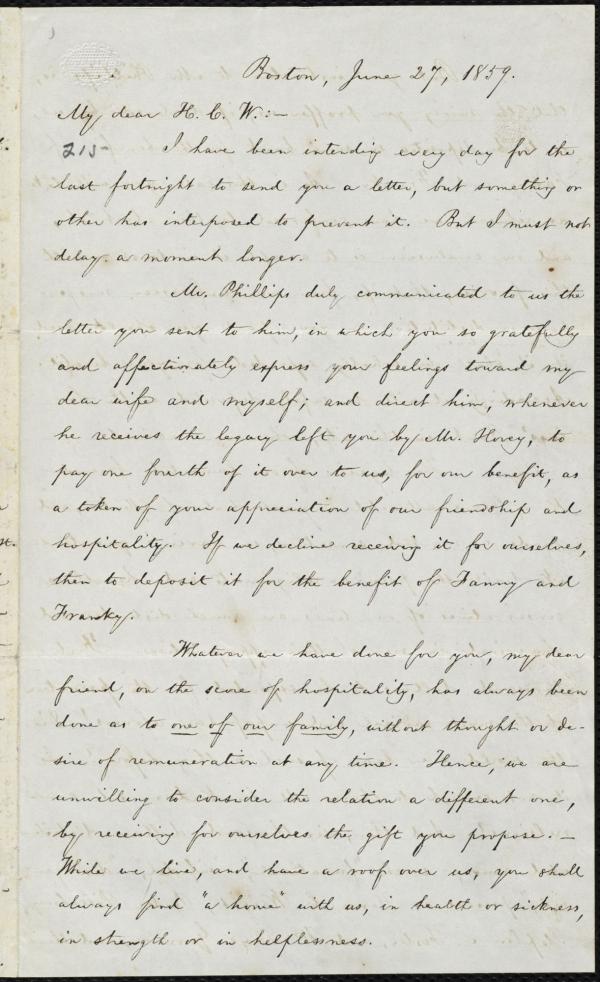 Boston, June 27, 1859.
My dear H. C. W.:—
215
I have been intending every day for the
last fortnight to send you a letter, but something or
other has interposed to prevent it. But I must not
delay a moment longer.
Mr. Phillips duly communicated to us the
letter you sent to him, in which you so gratefully
and affectionately express your feelings toward my
dear wife and myself; and direct him, whenever
he receives the legacy left you by Mr. Hovey, to
pay one fourth of it over to us, for our benefit, as
a token of your appreciation of our friendship and
hospitality. If we decline receiving it for ourselves,
then to deposit it for the benefit of Fanny and
Franky.
Whatever we have done for you, my dear
friend, on the score of hospitality, has always been
done as to one of our family, without thought or de-
sire of remuneration at any time. Hence, we are
unwilling to consider the relation a different one,
by receiving for ourselves the gift you propose. —
While we live, and have a roof over us, you shall
always find "a home" with us, in health or sickness,
in strength or in helplessness.